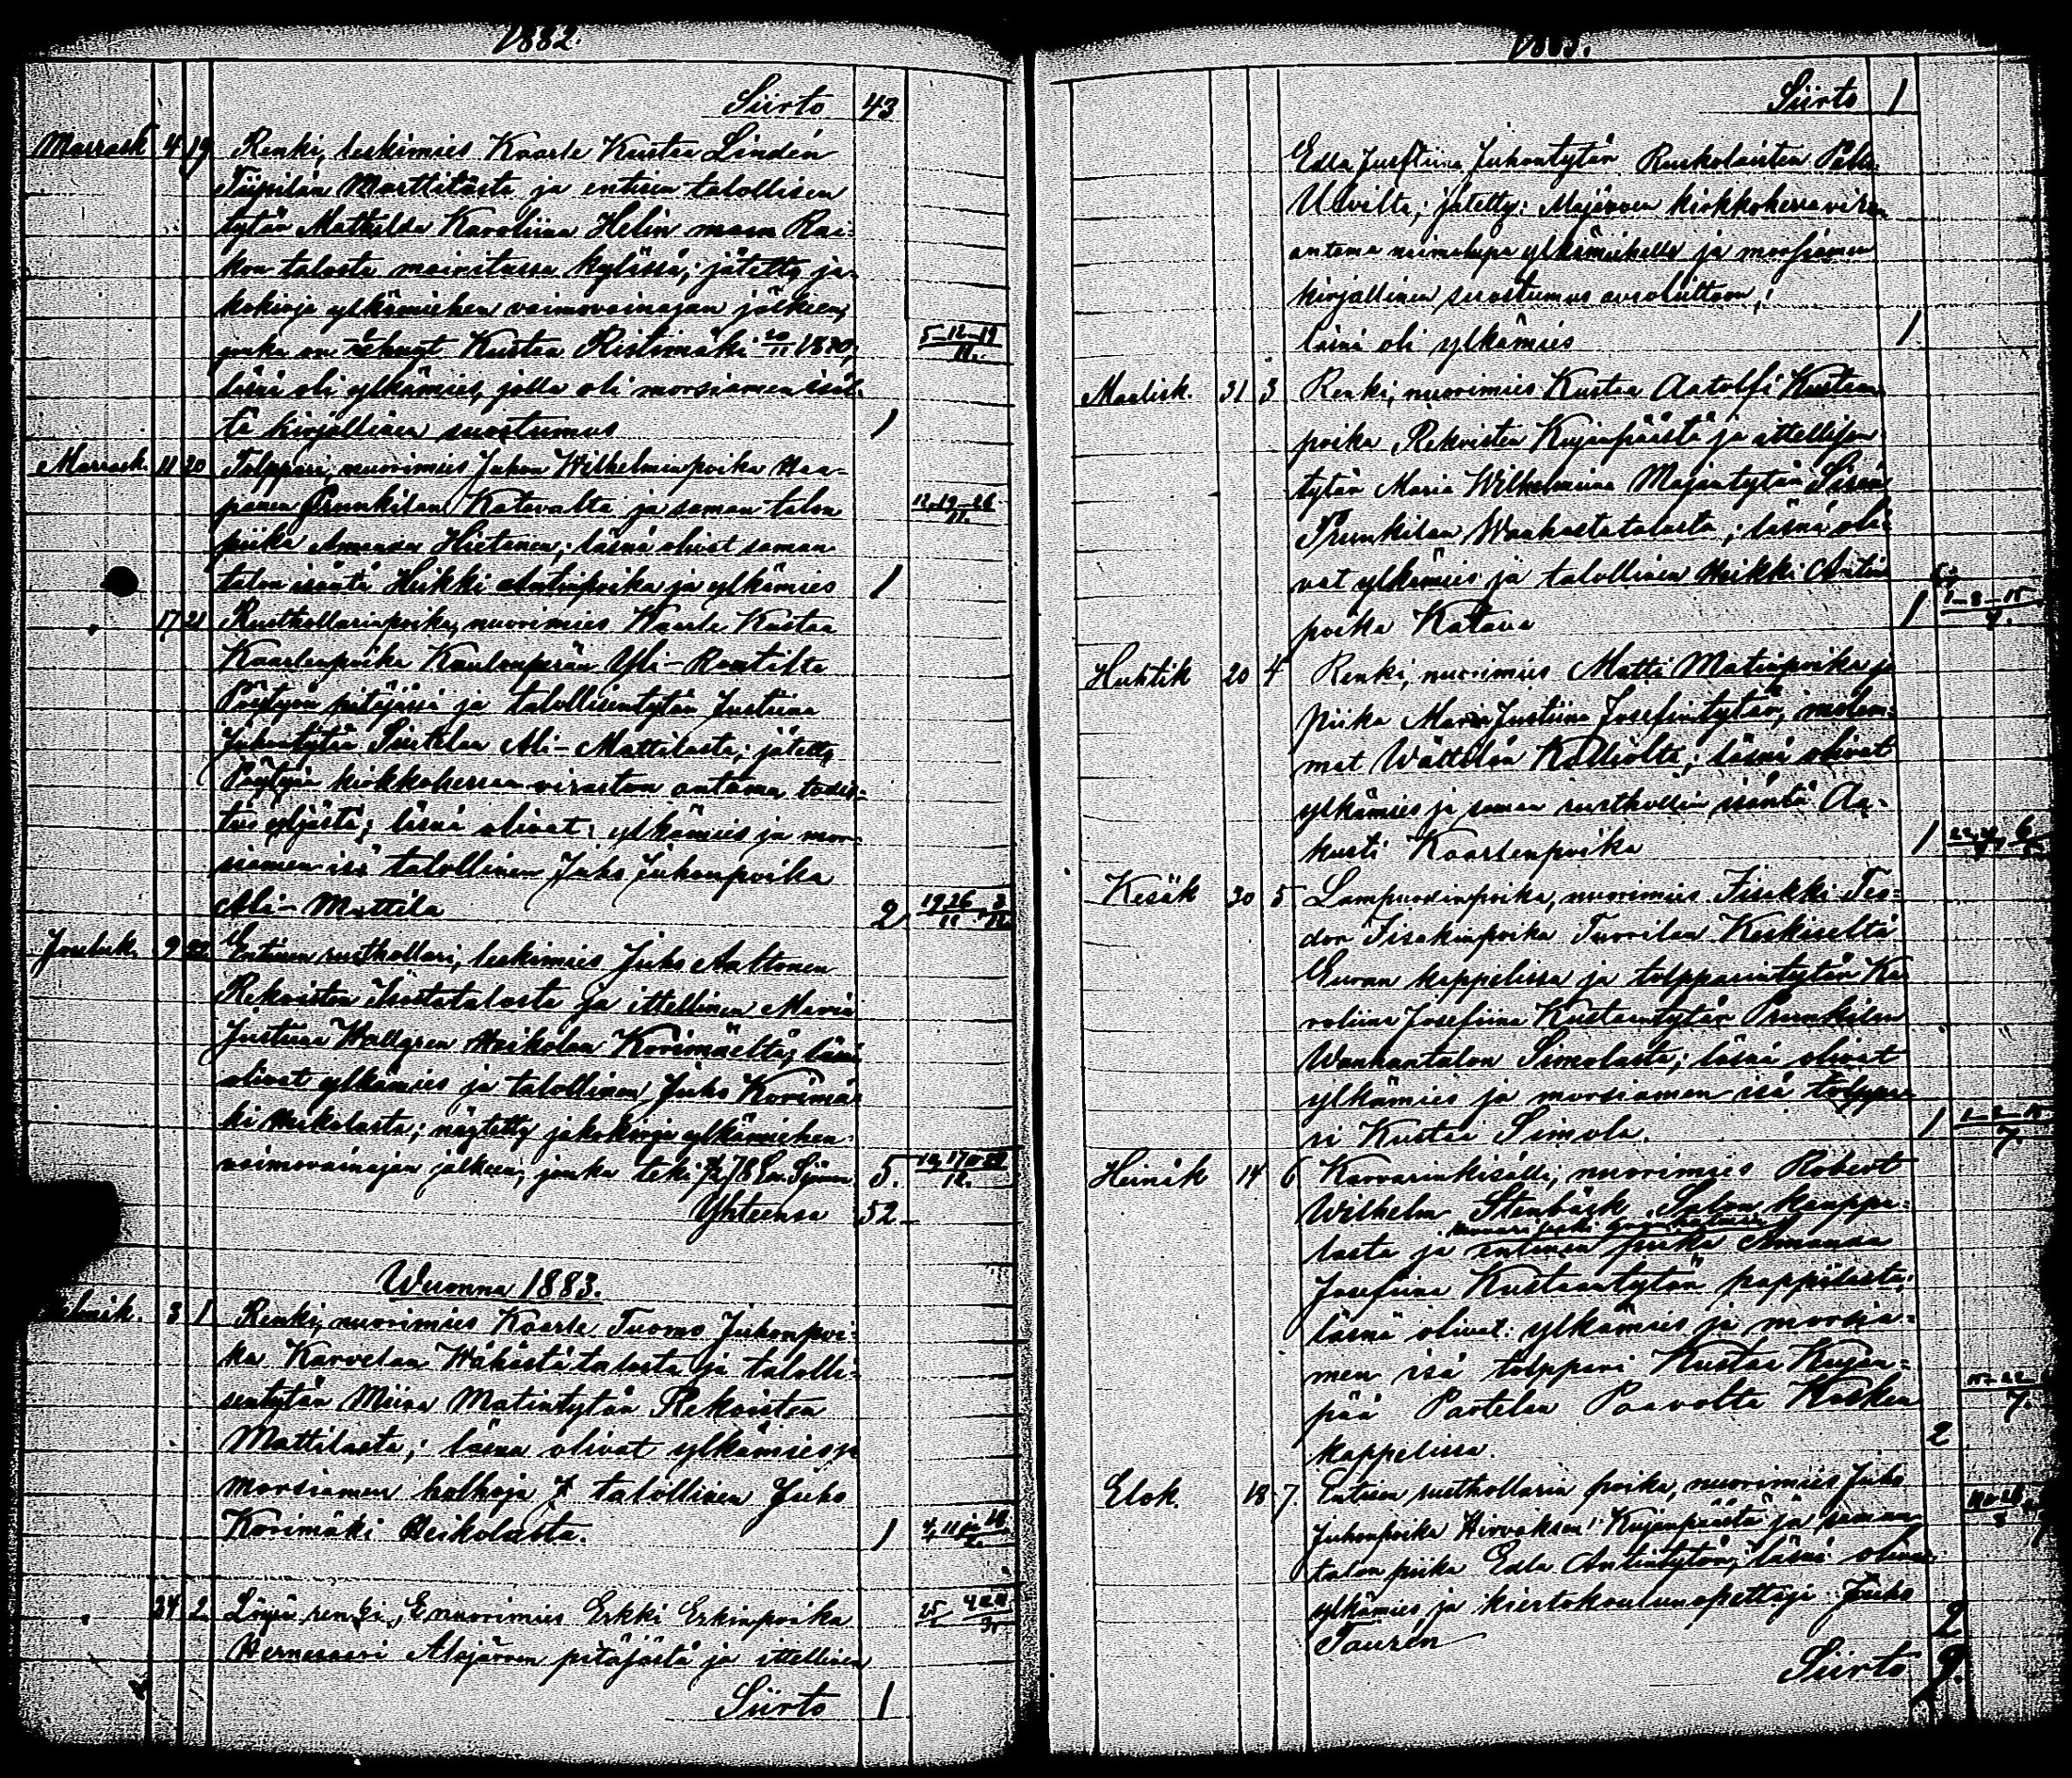 1882.
Siirto 43
Marrask 4 19 Renki, leskimies Kaarle Kustaa Lindén
Tiipilän Marttilasta ja entisen talollisen
tytär Mathilda Karoliina Helin maan Rai-
kon talosta mainitussa kylässä; jätetty ja-
kokirja ylkämiehen vaimovainajan jälkeen,
jonka on tehnyt Kustaa Ristimäki 20/11 1880; 5-12-19/11.
läsnä oli ylkämies, jolla oli morsiamen isäl-
tä kirjallinen suostumus 1
Marrask. 11 20 Tolppari, nuorimies Juhan Wilhelminpoika Haa-
panen Prunkilan Katavalta ja saman talon 12.19-26/11.
piika Amanda Hietanen; läsnä olivat saman
talon isäntä Heikki Antinpoika ja ylkämies 1
17 21 Rusthollarinpoika, nuorimies Kaarle Kustaa
Kaarlenpoika Kaulanperän Yli-Rantilta
Pöytyän pitäjässä ja talollisentytär Justiina
Juhontytär Ali-Mattilasta; jätetty
Pöytyän kirkkoherran viraston antama todis-
tus yljästä; läsnä olivat: ylkämies ja mor-
siamen isä talollinen Juho Juhonpoika
Ali-Mattila 2 19.26/11 3/12
Jouluk. 9 22 Entinen rusthollari, leskimies Juho Aaltonen
Rekoisten Isostatalosta ja ittellinen Maria
Justiina Wallgren Heikolan Korimäeltä; läsnä
olivat ylkämies ja talollinen Juho Korimä-
ki Heikolasta; näytetty jakokirja ylkämiehen
vaimovainajan jälkeen, jonka teki 78 5. 10, 17/12.
Yhteensä 52
Wuonna 1883.
3 1 Renki, nuorimies Kaarle Tuomo Juhonpoi-
ka Karvelan Wähästätalosta ja talolli-
sentytär Miina Matintytär Rekoisten
Mattilasta; läsnä olivat ylkämies ja
morsiamen holhoja talollinen Juho
Korimäki Heikolasta. 1 4, 11 ja 18/2.
24 2 renki, nuorimies Erkki Erkinpoika
Hernesaari Alajärven pitäjästä ja ittellinen
Siirto 1
1883.
Siirto 1
Edla Justiina Juhontytär Ruskolaisten
Ulvilta; jätetty: Alajärven kirkkoherraviras
antama naimalupa ylkämiehelle ja morsiamen
kirjallinen suostumus avioliittoon;
läsnä oli ylkämies 1
Maalisk. 31 3 Renki, nuorimies Kustaa Aatolfi Kustaan
poika Rekoisten Kujanpäästä ja ittellisen
tytär Maria Wilhelmiina Majantytär Sirén
Prunkilan Wanhastatalosta; läsnä oli-
vat ylkämies ja talollinen Heikki Antin
poika Katava 1 1-8-15/4.
Huhtik 20 4 Renki, nuorimies Matti Matinpoika ja
piika Maria Justiina Josefintytär, molem-
mat Wättilän Kalliolta; läsnä olivat
ylkämies ja saman rusthollin isäntä Aa-
kusti Kaarlenpoika 1
Kesäk 30 5 Lampuodinpoika, nuorimies Iisakki Teo-
dor Iisakinpoika Tuorilan Keskiseltä
Euran kappelissa ja tolpparintytär Ka
roliina Josefiina Kustaantytär Prunkilan
Wanhantalon Simolasta; läsnä olivat
ylkämies ja morsiamen isä tolppa-
ri Kustaa Simola. 1 1-8-15/7.
Heinäk 14 6 Karvarinkisälli, nuorimies Robert
Wilhelm Stenbäck Salon kauppa-
lasta ja entinen piika Amanda
Josefiina Kustaantytär pappilasta;
läsnä olivat: ylkämies ja morsia-
men isä tolppari Kustaa Kujan-
pää Partelan Paavolta Kosken 15-22/7.
kappelissa. 2
Elok. 18 7. Entisen rusthollarin poika, nuorimies Juho
Juhonpoika Hirvaksen Kujanpäästä ja saman
talon piika Edla Antintytär; läsnä oliva
ylkämies ja kiertokoulunopettaja Juho
Taurén 2
Siirto 9.